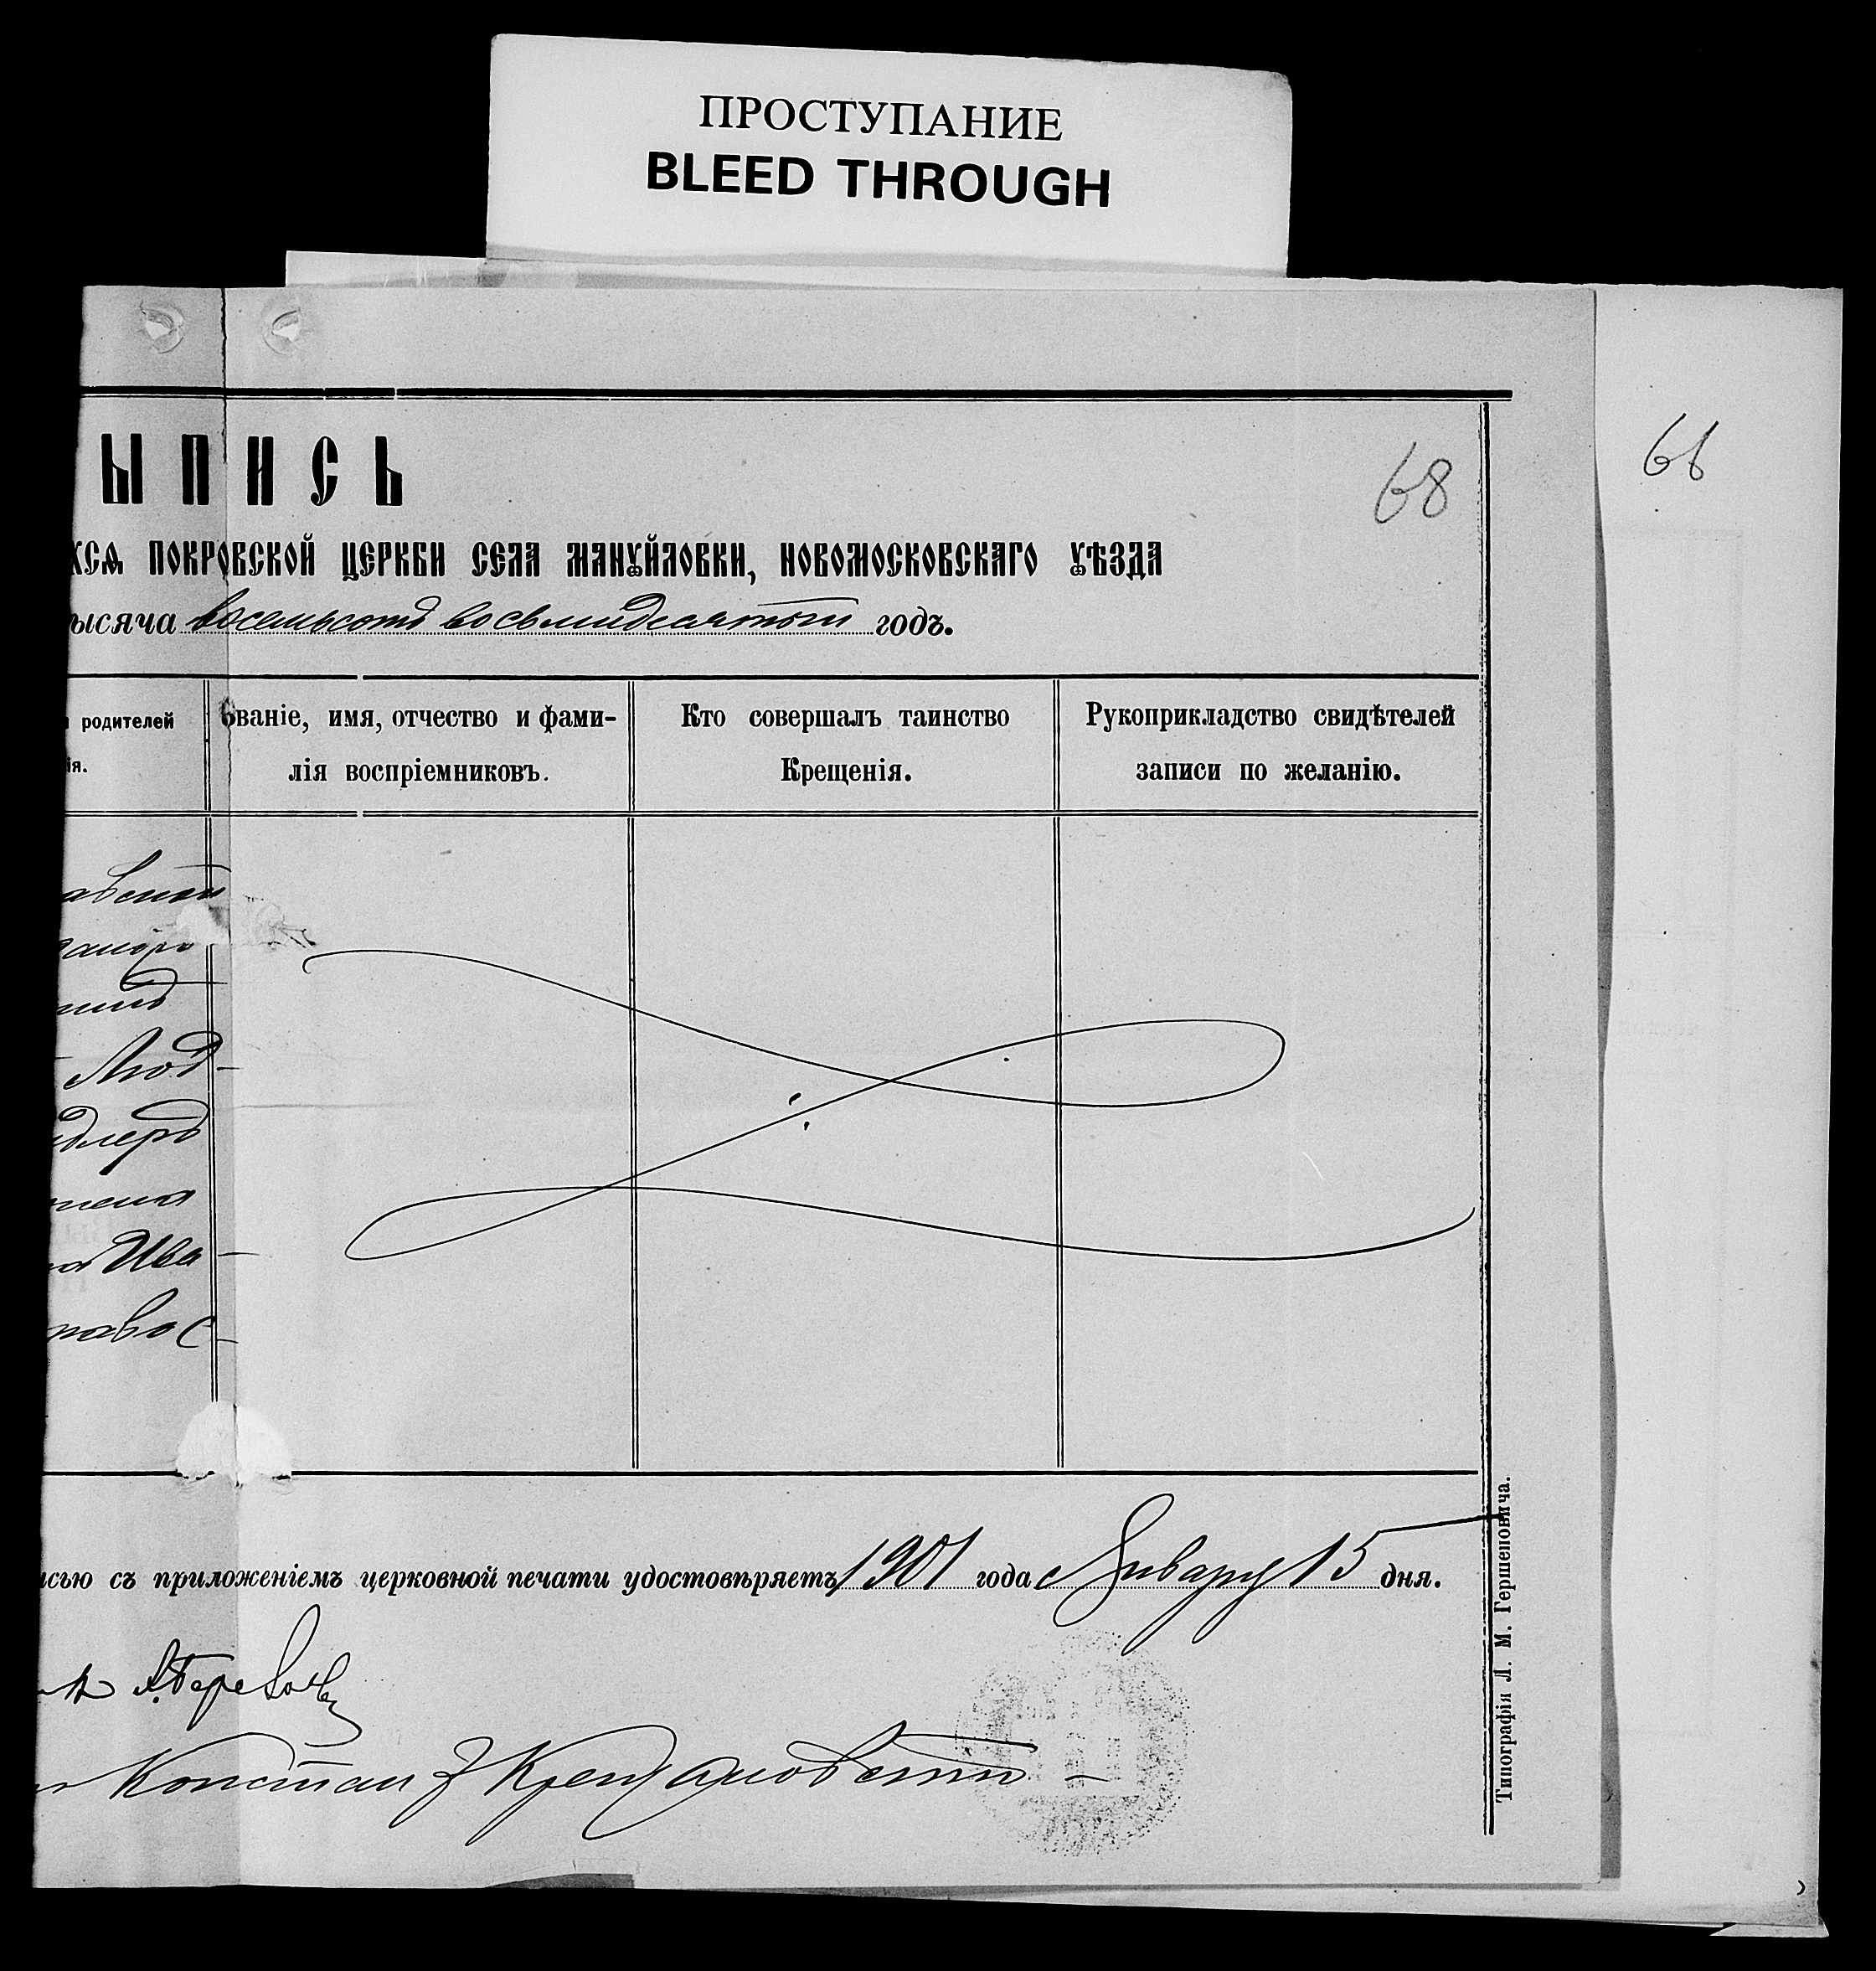 ПРОСТУПАНИЕ
BLEED THROUGH
ЫПИСЬ
68
66
ХСѦ ПОКРОВСКОЙ ЦЕРКВИ СЕЛА МАНУЙЛОВКИ, НОВОМОСКОВСКАГО УѢЗДА
ысяча восемьсотъ восьмидесятый годъ.
родителей
ія.
Званіе, имя, отчество и фами-
лія воспріемниковъ.
Кто совершалъ таинство
Крещенія.
Рукоприкладство свидѣтелей
записи по желанію.
авской
Люд-
длеръ
жена
Ива-
равос-
исью съ приложеніемъ церковной печати удостовѣряетъ 1901 года Января 15 дня.
Констан
Типографія Л. М. Гершеновича.